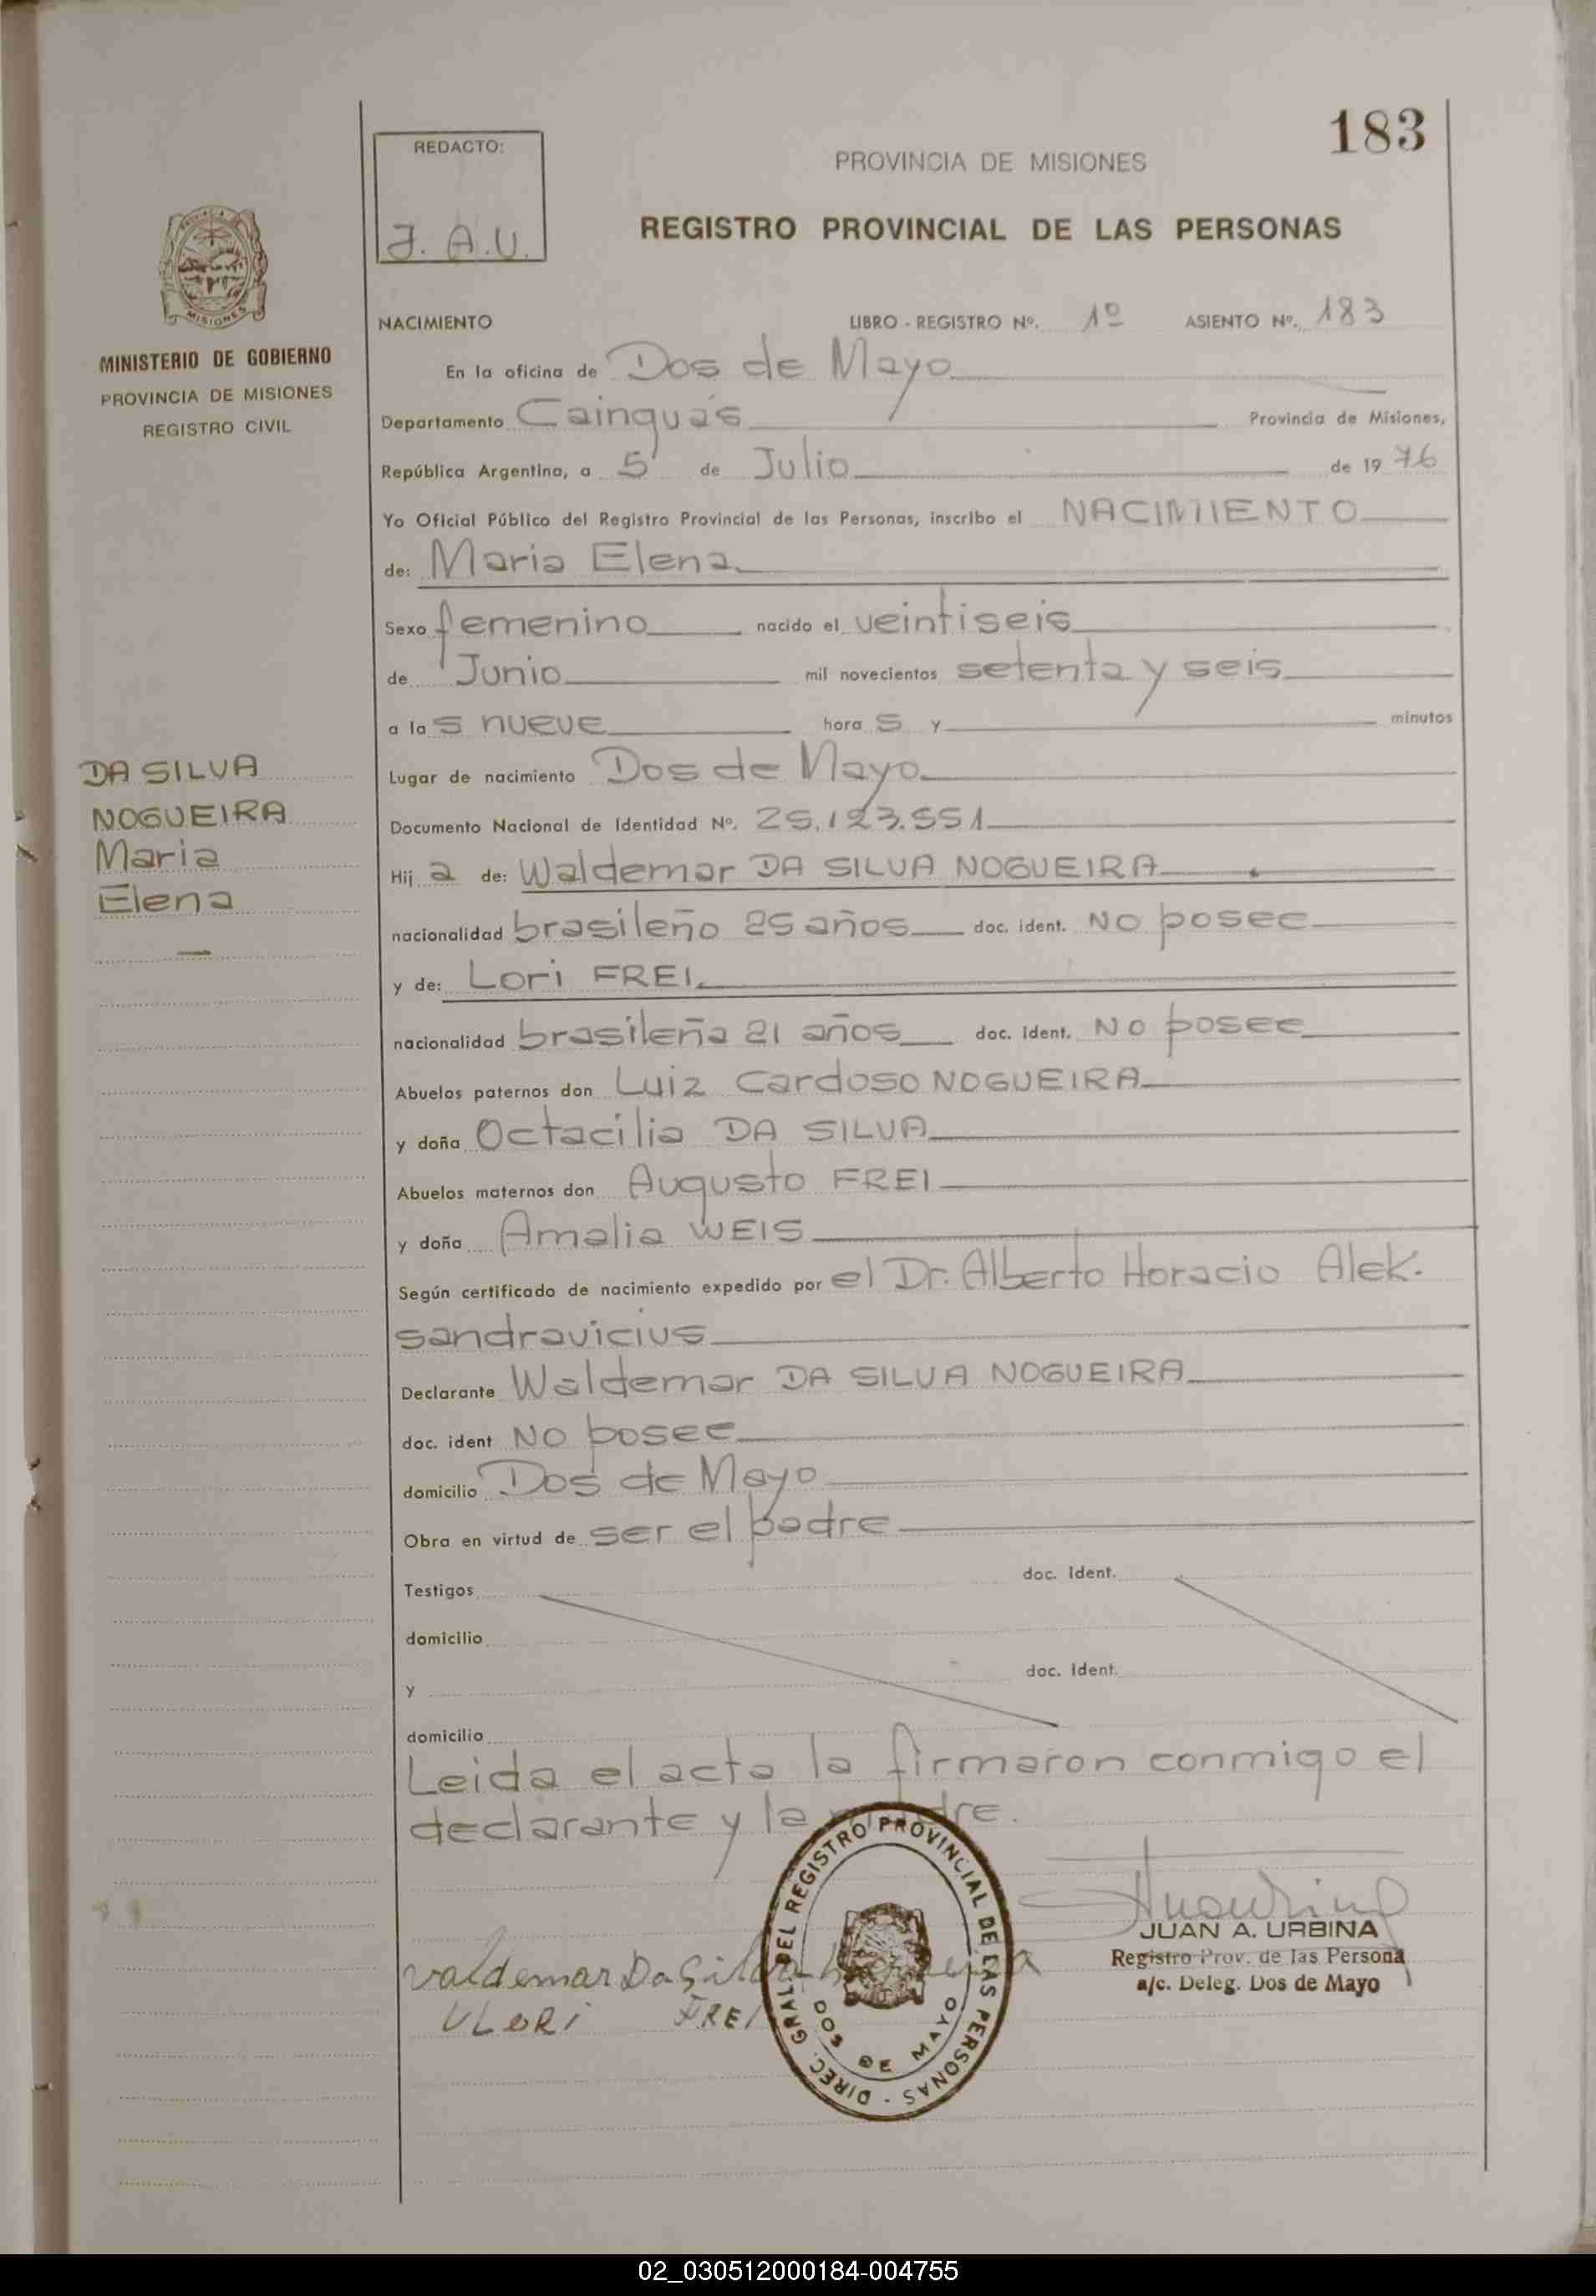 183
REDACTO:
J. A.U.
PROVINCIA DE MISIONES
REGISTRO PROVINCIAL DE LAS PERSONAS
MISIONES
MINISTERIO DE GOBIERNO
PROVINCIA DE MISIONES
REGISTRO CIVIL
NACIMIENTO LIBRO - REGISTRO Nº. 1º ASIENTO Nº. 183
En la oficina de Dos de Mayo
Departamento Cainguás Provincia de Misiones,
República Argentina, a 5 de Julio de 19 76
Yo Oficial Público del Registro Provincial de las Personas, inscribo el NACIMIENTO
de: Maria Elena
Sexo femenino nacido el veintiseis
de Junio mil novecientos setenta y seis
a la s nueve hora s y minutos
Lugar de nacimiento Dos de Mayo
Documento Nacional de Identidad Nº. 25.123.551
Hij a de: Waldemar DA SILVA NOGUEIRA
nacionalidad brasileño 25 años doc. ident. No posee
y de: Lori FREI
nacionalidad brasileña 21 años doc. ident. No posee
Abuelos paternos don Luiz Cardoso NOGUEIRA
y doña Octacilia DA SILVA
Abuelos maternos don Augusto FREI
y doña Amalia WEIS
Según certificado de nacimiento expedido por el Dr. Alberto Horacio Alek.
sandravicius
Declarante Waldemar DA SILVA NOGUEIRA
doc. ident No posee
domicilio Dos de Mayo
Obra en virtud de ser el padre
Testigos doc. ident.
domicilio
y doc. ident.
domicilio
Leida el acta la firmaron conmigo el
declarante y la madre.
DA SILVA
NOGUEIRA
Maria
Elena
valdemar Da Silva
FREI
DIREC. GRAL. DEL REGISTRO PROVINCIAL DE LAS PERSONAS -
DOS DE MAYO
JUAN A. URBINA
Registro Prov. de las Persona
a/c. Deleg. Dos de Mayo
02_030512000184-004755